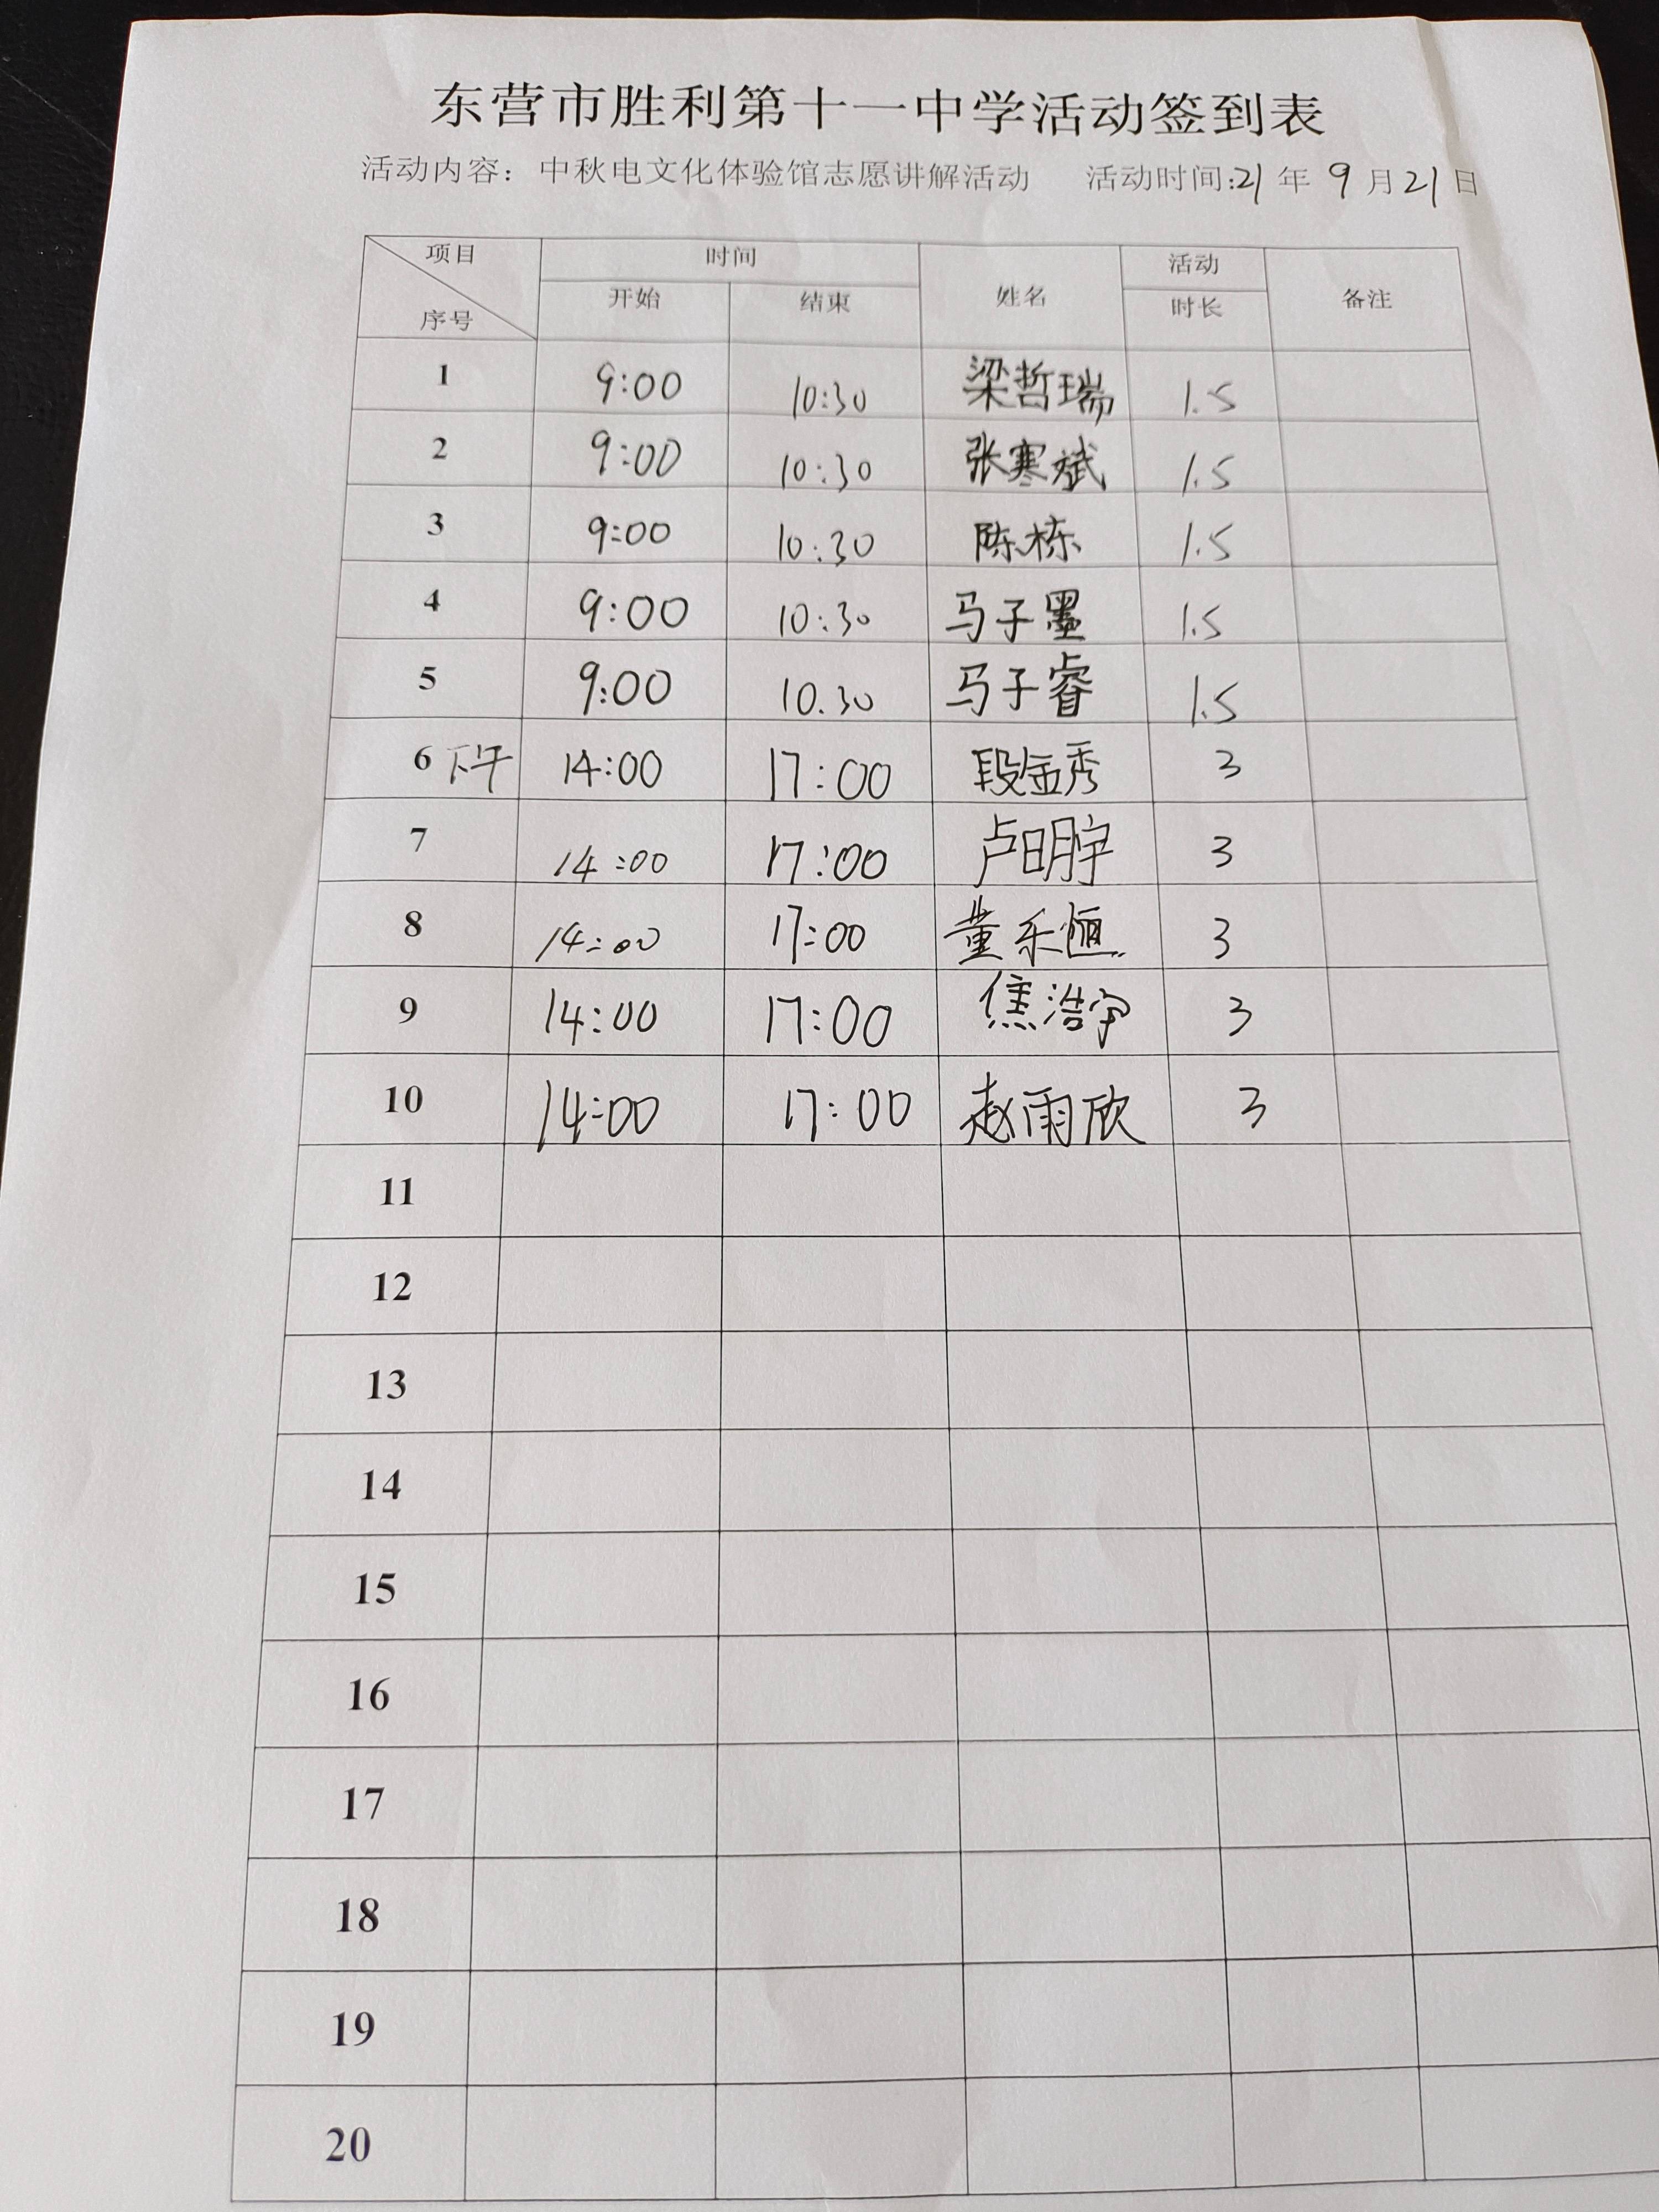 东营市胜利第十一中学活动签到表
活动内容：中秋电文化体验馆志愿讲解活动 活动时间:21年9月21日
项目 时间 姓名 活动 备注
序号 开始 结束 时长
1 9:00 10:30 梁哲瑞 1.5
2 9:00 10:30 张寒斌 1.5
3 9:00 10:30 陈栋 1.5
4 9:00 10:30 马子墨 1.5
5 9:00 10.30 马子睿 1.5
6 下午 14:00 17:00 段金秀 3
7 14:00 17:00 卢明宇 3
8 14:00 17:00 董乐恒 3
9 14:00 17:00 焦浩宇 3
10 14:00 17:00 赵雨欣 3
11
12
13
14
15
16
17
18
19
20